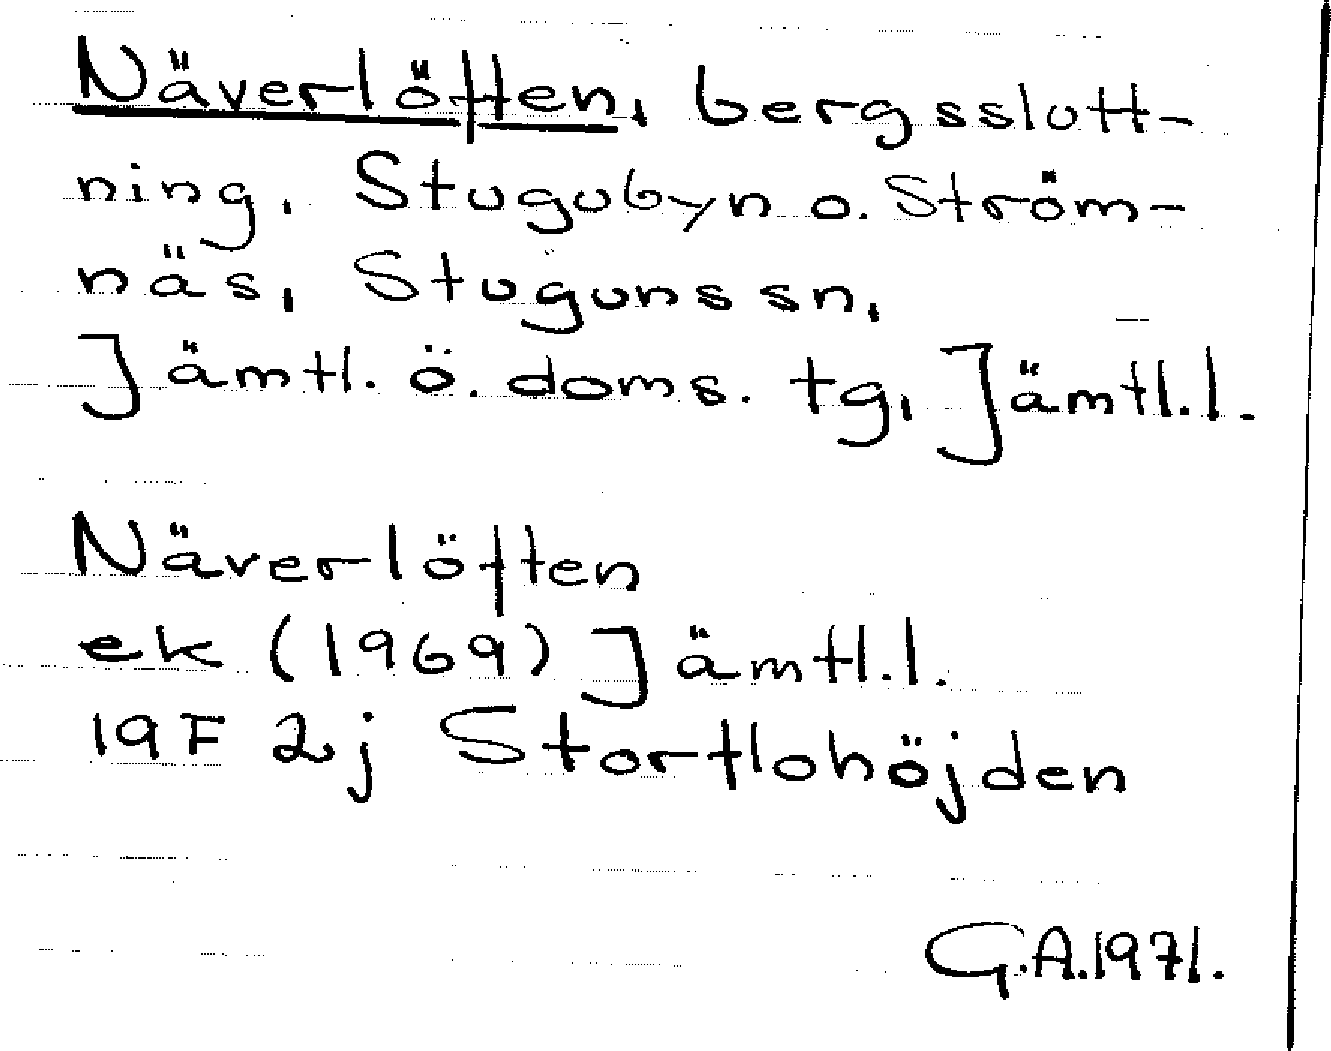 Näverlöften, bergsslutt-
ning, Stugubyn o. Ström-
näs, Stuguns sn,
Jämtl. ö. doms. tg, Jämtl. l.
Näverlöften
ek (1969) Jämtl. l.
19F 2j Stortlohöjden
G.A. 1971.